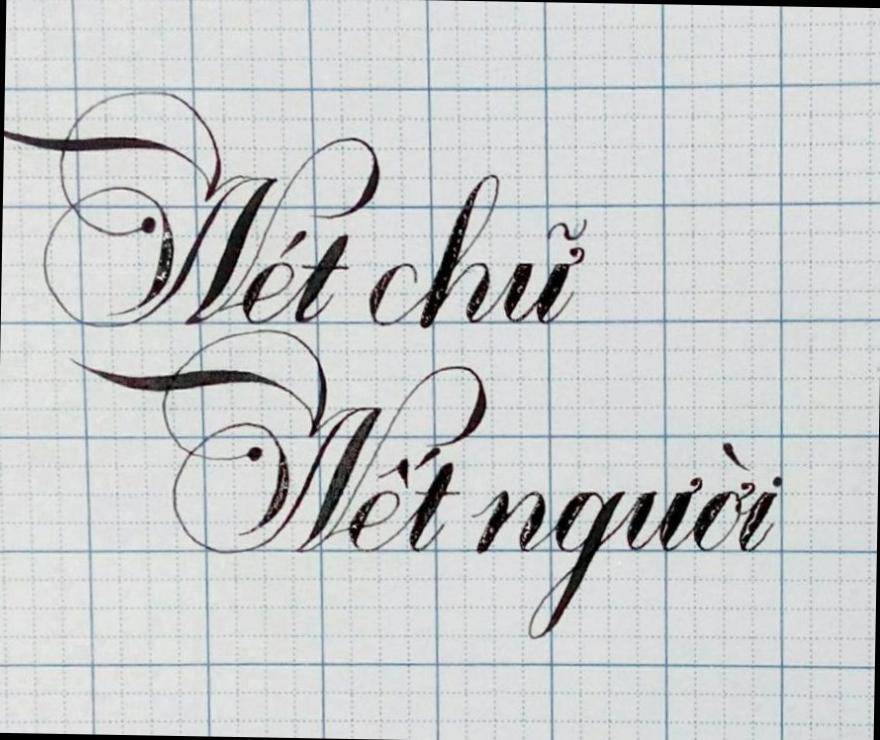 Nét chữ
Nết người